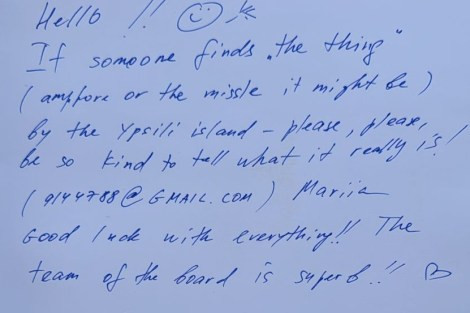 Hello !! ☺
If somoone finds „the thing"
(amphore or the missle it might be)
by the Ypsili island – please, please,
be so kind to tell what it really is!
(9144788@GMAIL.COM) Mariia
Good luck with everything!! The
team of the board is superb!! ♡